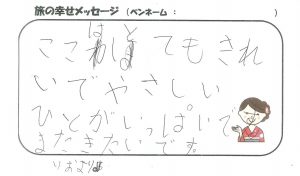 旅の幸せメッセージ (ペンネーム : )
ここはとてもきれ
いでやさしい
ひとがいっぱいで
またきたいです。
りおより